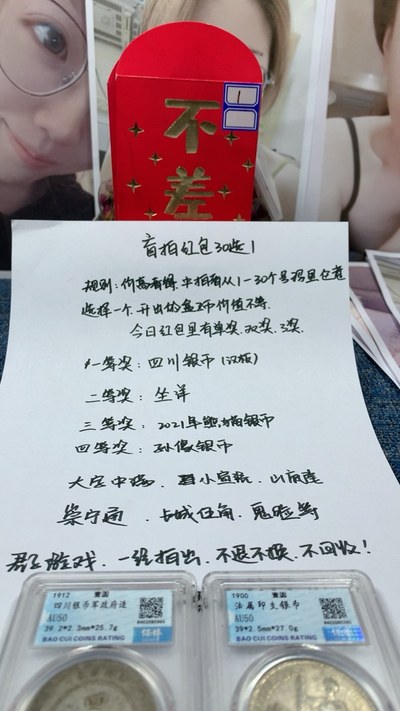 1
不
差
盲拍红包30选1
规则:价高者得,中拍者从1-30个号码里任意
选择一个,开出的盒子币价值不等.
今日红包里有单奖.双奖.3奖.
一等奖:四川银币(汉版)
二等奖:坐洋
三等奖:2021年熊猫银币
四等奖:孙像银币
大宝中瑞.小宣花.山庙
崇宁通.长城伍角.鬼脸等
群主游戏.一经拍出.不退不换.不回收!
1912 壹圆
四川银币军政府造
AU50
39.2*2.3mm*25.7g
保粹
BAO CUI COINS RATING
1900 壹圆
法属印支银币
AU50
39*2.5mm*27.0g
保粹
BAO CUI COINS RATING